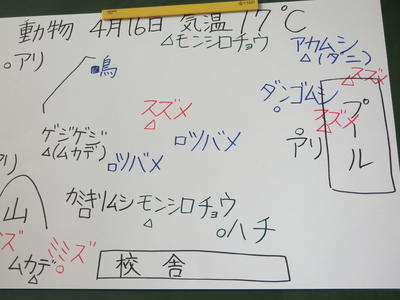 動物 4月16日 気温17℃
△モンシロチョウ
アカムシ
△(ダニ)
○アリ
鳥
スズメ
△
ダンゴムシ
○
スズメ
△
スズメ
△
プール
ゲジゲジ
△(ムカデ)
○ツバメ
○ツバメ
アリ
○
アリ
山
カミキリムシ
□
モンシロチョウ
△
○ハチ
ミミズ
○
ムカデ
△
校舎